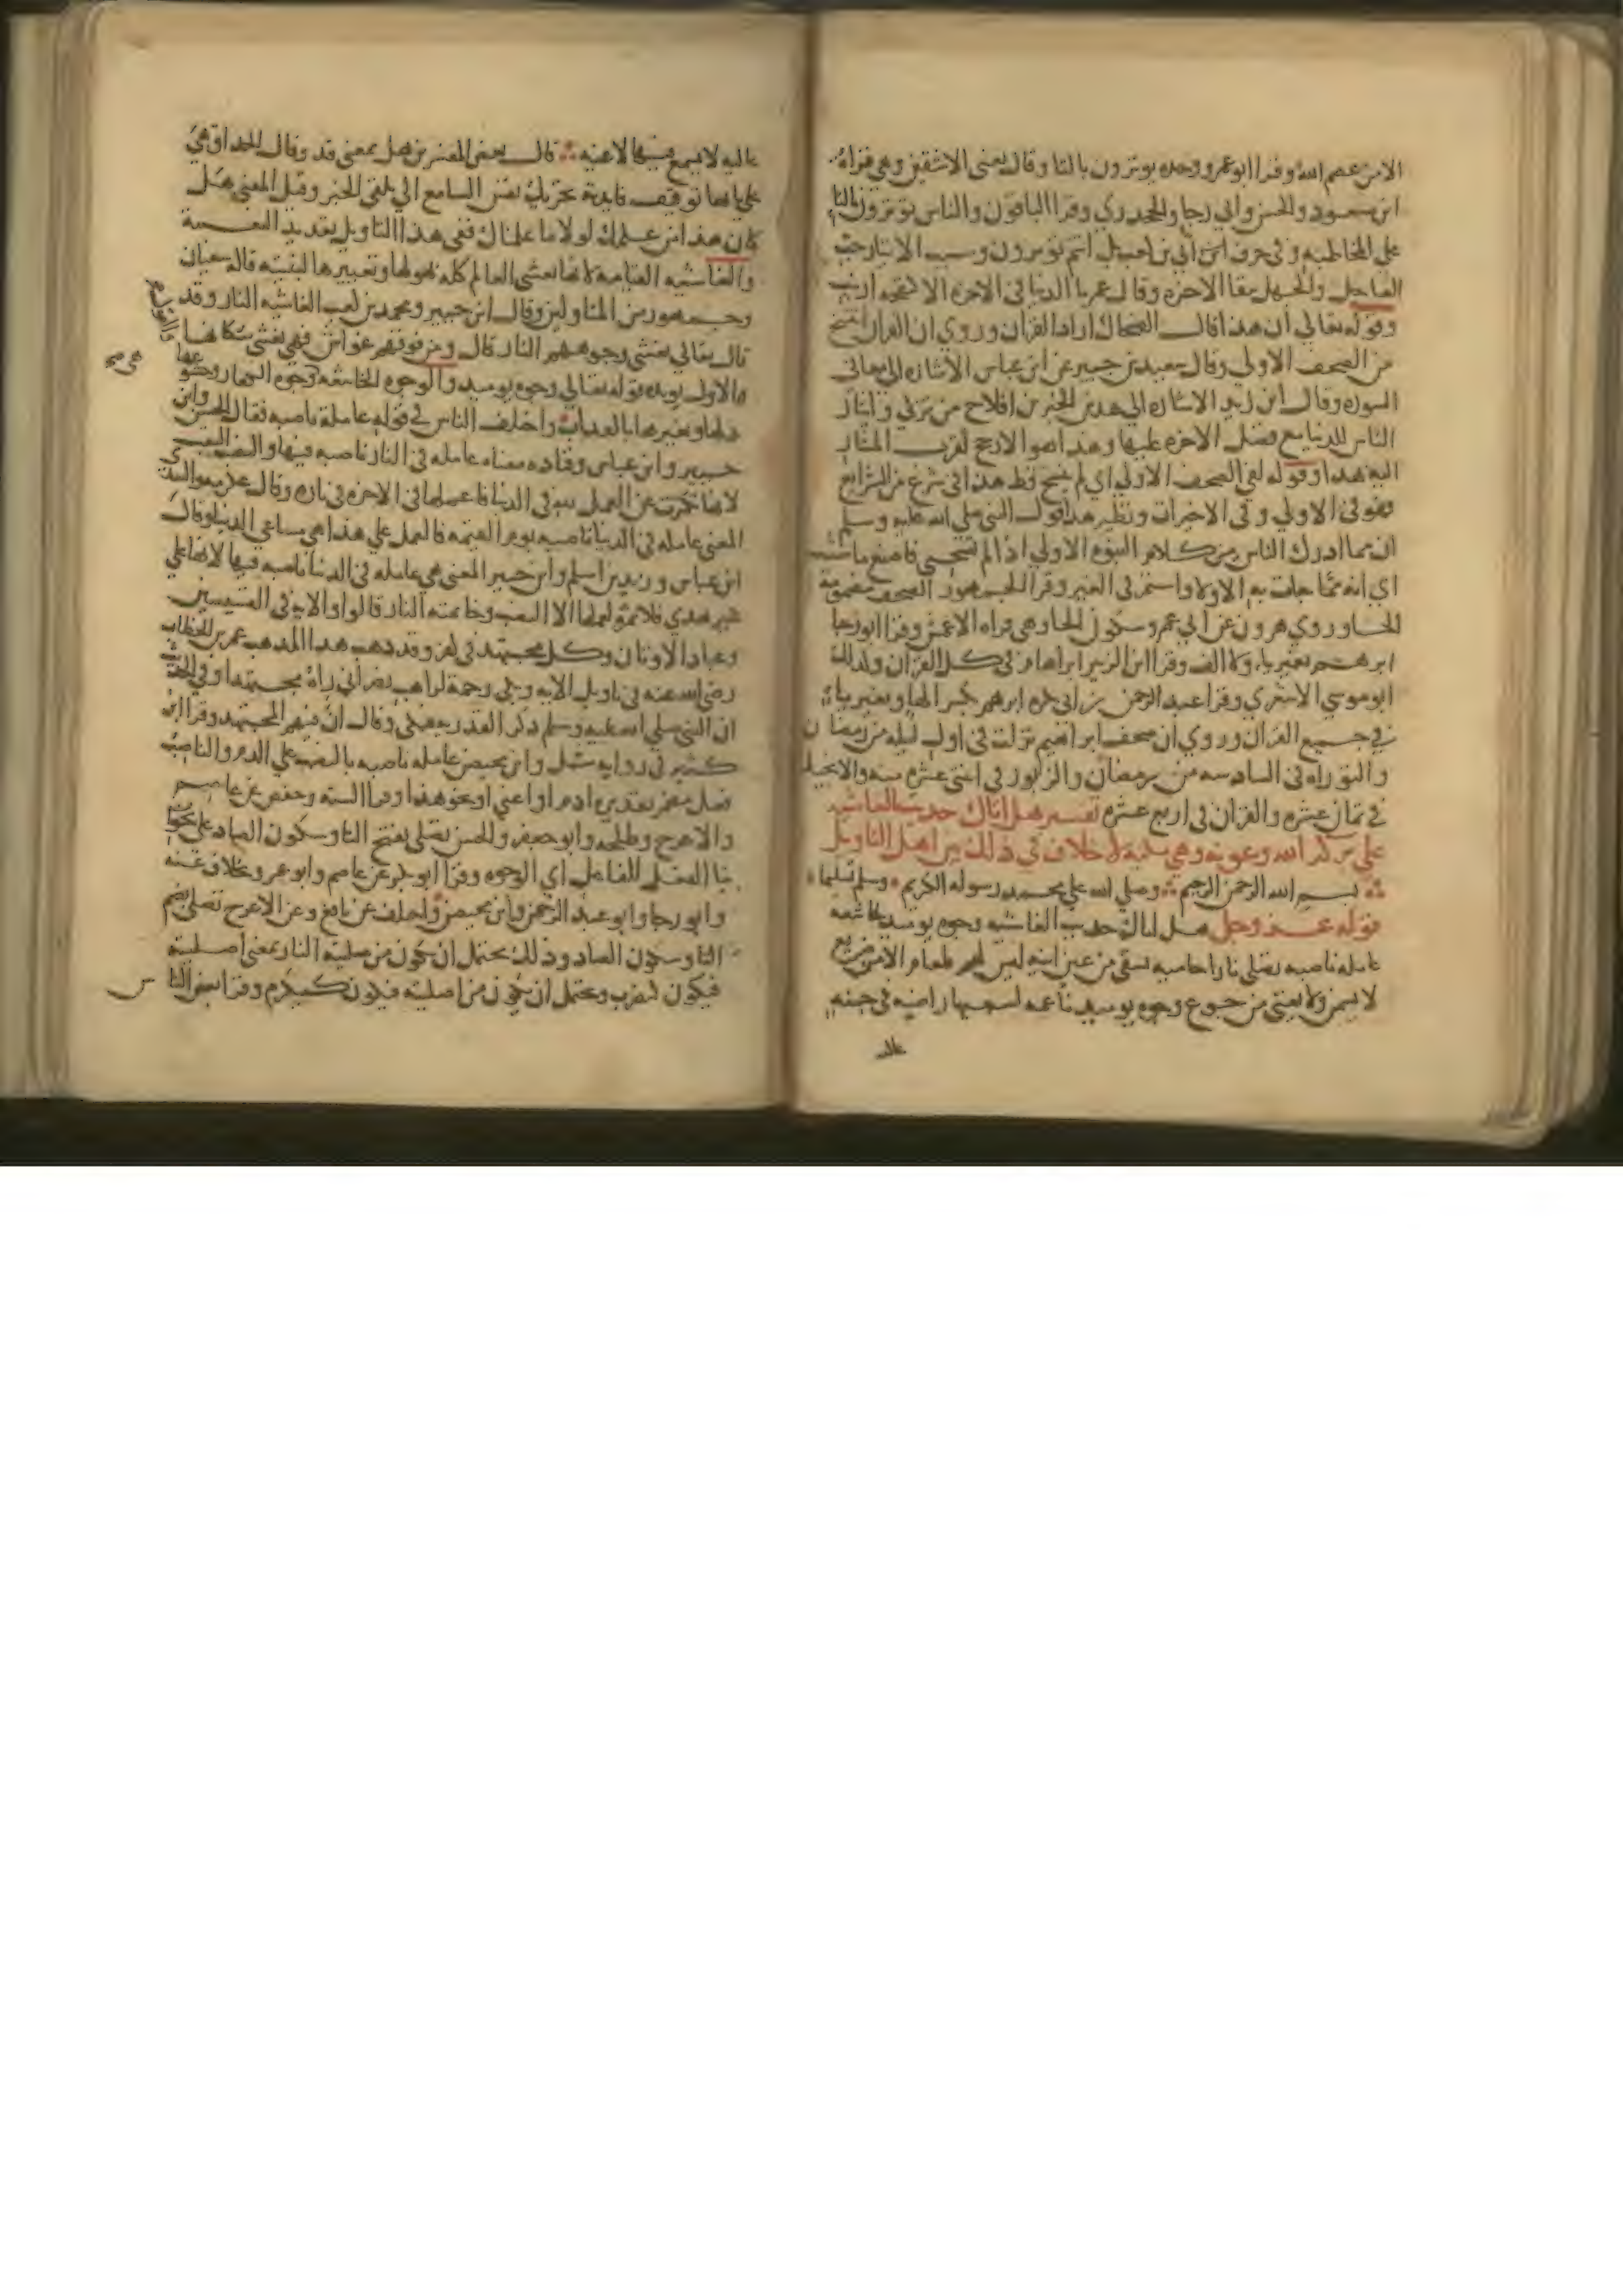 الامن عصم الله وقرا ابو عمرو وحده يوثرون باليا وقال يعنى الاشقين وهي قراة
ابن مسعود والحسن وابي رجا والجحدري وقرا الباقون والناس توثرون بالتا
على المخاطبه وفي حرف ابي بن كعب بل انتم توثرون وسبب الايثار حب
العاجل والجهل ببقا الاخره وقال عمر ما الدنيا في الاخره الا كنفجه ارنب
وقوله تعالى ان هذا قال الضحاك اراد القران وروي ان القران انتسخ
من الصحف الاولى وقال سعيد بن جبير عن ابن عباس الاشاره الى معاني
السوره وقال ابن زيد الاشاره الى هذين الخبرين افلاح من تزكي وايثار
الناس للدنيا مع فضل الاخره عليها وهذا هو الارجح لقرب المشار
اليه بهذا وقوله لفي الصحف الاولي اي لم ينسخ قط هذا في شرع من الشرايع
فهو في الاولي وفي الاخيرات ونظير هذا قول النبي صلى الله عليه وسلم
ان مما ادرك الناس من كلام النبوه الاولي اذا لم تستحي فاصنع ما شئت
اي انه مما جات به الاولا واستمر في الغير وقرا الجمهور الصحف مضمومة
الحا وروي هرون عن ابي عمرو سكون الحا وهي قراه الاعمش وقرا ابو رجا
ابرهم بغير يا ولا الف وقرا ابن الزبير ابراهام في كل القران وكذلك
ابو موسي الاشعري وقرا عبد الرحمن بن ابي بكره ابرهم بكسر الها وبغير ياء
في جميع القران وروي ان صحف ابراهيم نزلت في اول ليله من رمضان
والتوراه في السادسه من رمضان والزبور في اثنتي عشره منه والانجيل
في ثمان عشره والقران في اربع عشره تفسير هل اتاك حديث الغاشيه
على بركه الله وعونه وهي مكية لا خلاف في ذلك بين اهل التاويل
بسم الله الرحمن الرحيم وصلي الله على محمد رسوله الكريم وسلم تسليما
قوله عز وجل هل اتاك حديث الغاشيه وجوه يوميذ خاشعه
عامله ناصبه تصلى نارا حاميه تسقى من عين انيه ليس لهم طعام الا من ضريع
لا يسمن ولا يغني من جوع وجوه يوميذ ناعمه لسعيها راضيه في جنه
عاليه
عاليه لا تسمع فيها لاغيه قال بعض المفسرين هل بمعنى قد وقال الحذاق هي
على بابها توقيف فايدته تحريك نفس السامع الي تلقي الخبر وقيل المعنى هل
كان هذا من علمك لولا ما علمناك ففي هذا التاويل تعديد النعمة
والغاشيه القيامة لانها تغشى العالم كله بهولها وتغييرها لبنيته قاله سفيان
وجمهور من المتاولين وقال ابن جبير ومحمد بن كعب الغاشيه النار وقد
قال تعالى تغشى وجوههم النار قال ومن فوقهم غواش فهي تغشى سكانها
والاول يويده قوله تعالى وجوه يوميذ والوجوه الخاشعه وجوه الكفار وخشوعها
ذلها وتغيرها بالعذاب واختلف الناس في قوله عامله ناصبه فقال الحسن وابن
جبير وابن عباس وقتاده معناه عامله في النار ناصبه فيها والنصب التعب
لانها تكبرت عن العمل لله في الدنيا فاعملها في الاخره في ناره وقال عكرمه والسدي
المعنى عامله في الدنيا ناصبه يوم القيمه فالعمل علي هذا هي مساعي الدنيا وقال
ابن عباس وزيد بن اسلم وابن جبير المعنى هي عامله في الدنيا ناصبه فيها لانها على
غير هدي فلا ثمره لعملها الا النصب وخاتمته النار قالوا والايه في القسيسين
وعباد الاوثان وكل مجتهد في كفر وقد ذهب هذا المذهب عمر بن الخطاب
رضى الله عنه في تاويل الايه وبكى رحمة لراهب نصراني راه مجتهدا وفي الحديث
ان النبي صلى الله عليه وسلم ذكر القدريه فبكى وقال ان فيهم المجتهد وقرا ابن
كثير في روايه شبل وابن محيصن عامله ناصبه بالنصب على الذم والناصب
فعل مضمر تقديره اذم او اعني او نحو هذا وقرا السته وحفص عن عاصم
والاعرج وطلحه وابو جعفر والحسن تصلى بفتح التا وسكون الصاد على
بنا الفعل للفاعل اي الوجوه وقرا ابو بكر عن عاصم وابو عمرو بخلاف عنه
وابو رجا وابو عبد الرحمن وابن محيصن واختلف عن نافع وعن الاعرج تصلى بضم
التا وسكون الصاد وذلك يحتمل ان يكون من صليته النار بمعنى اصليته
فيكون كتضرب ويحتمل ان يكون من اصليت فيكون كتكرم وقرا بعض الناس